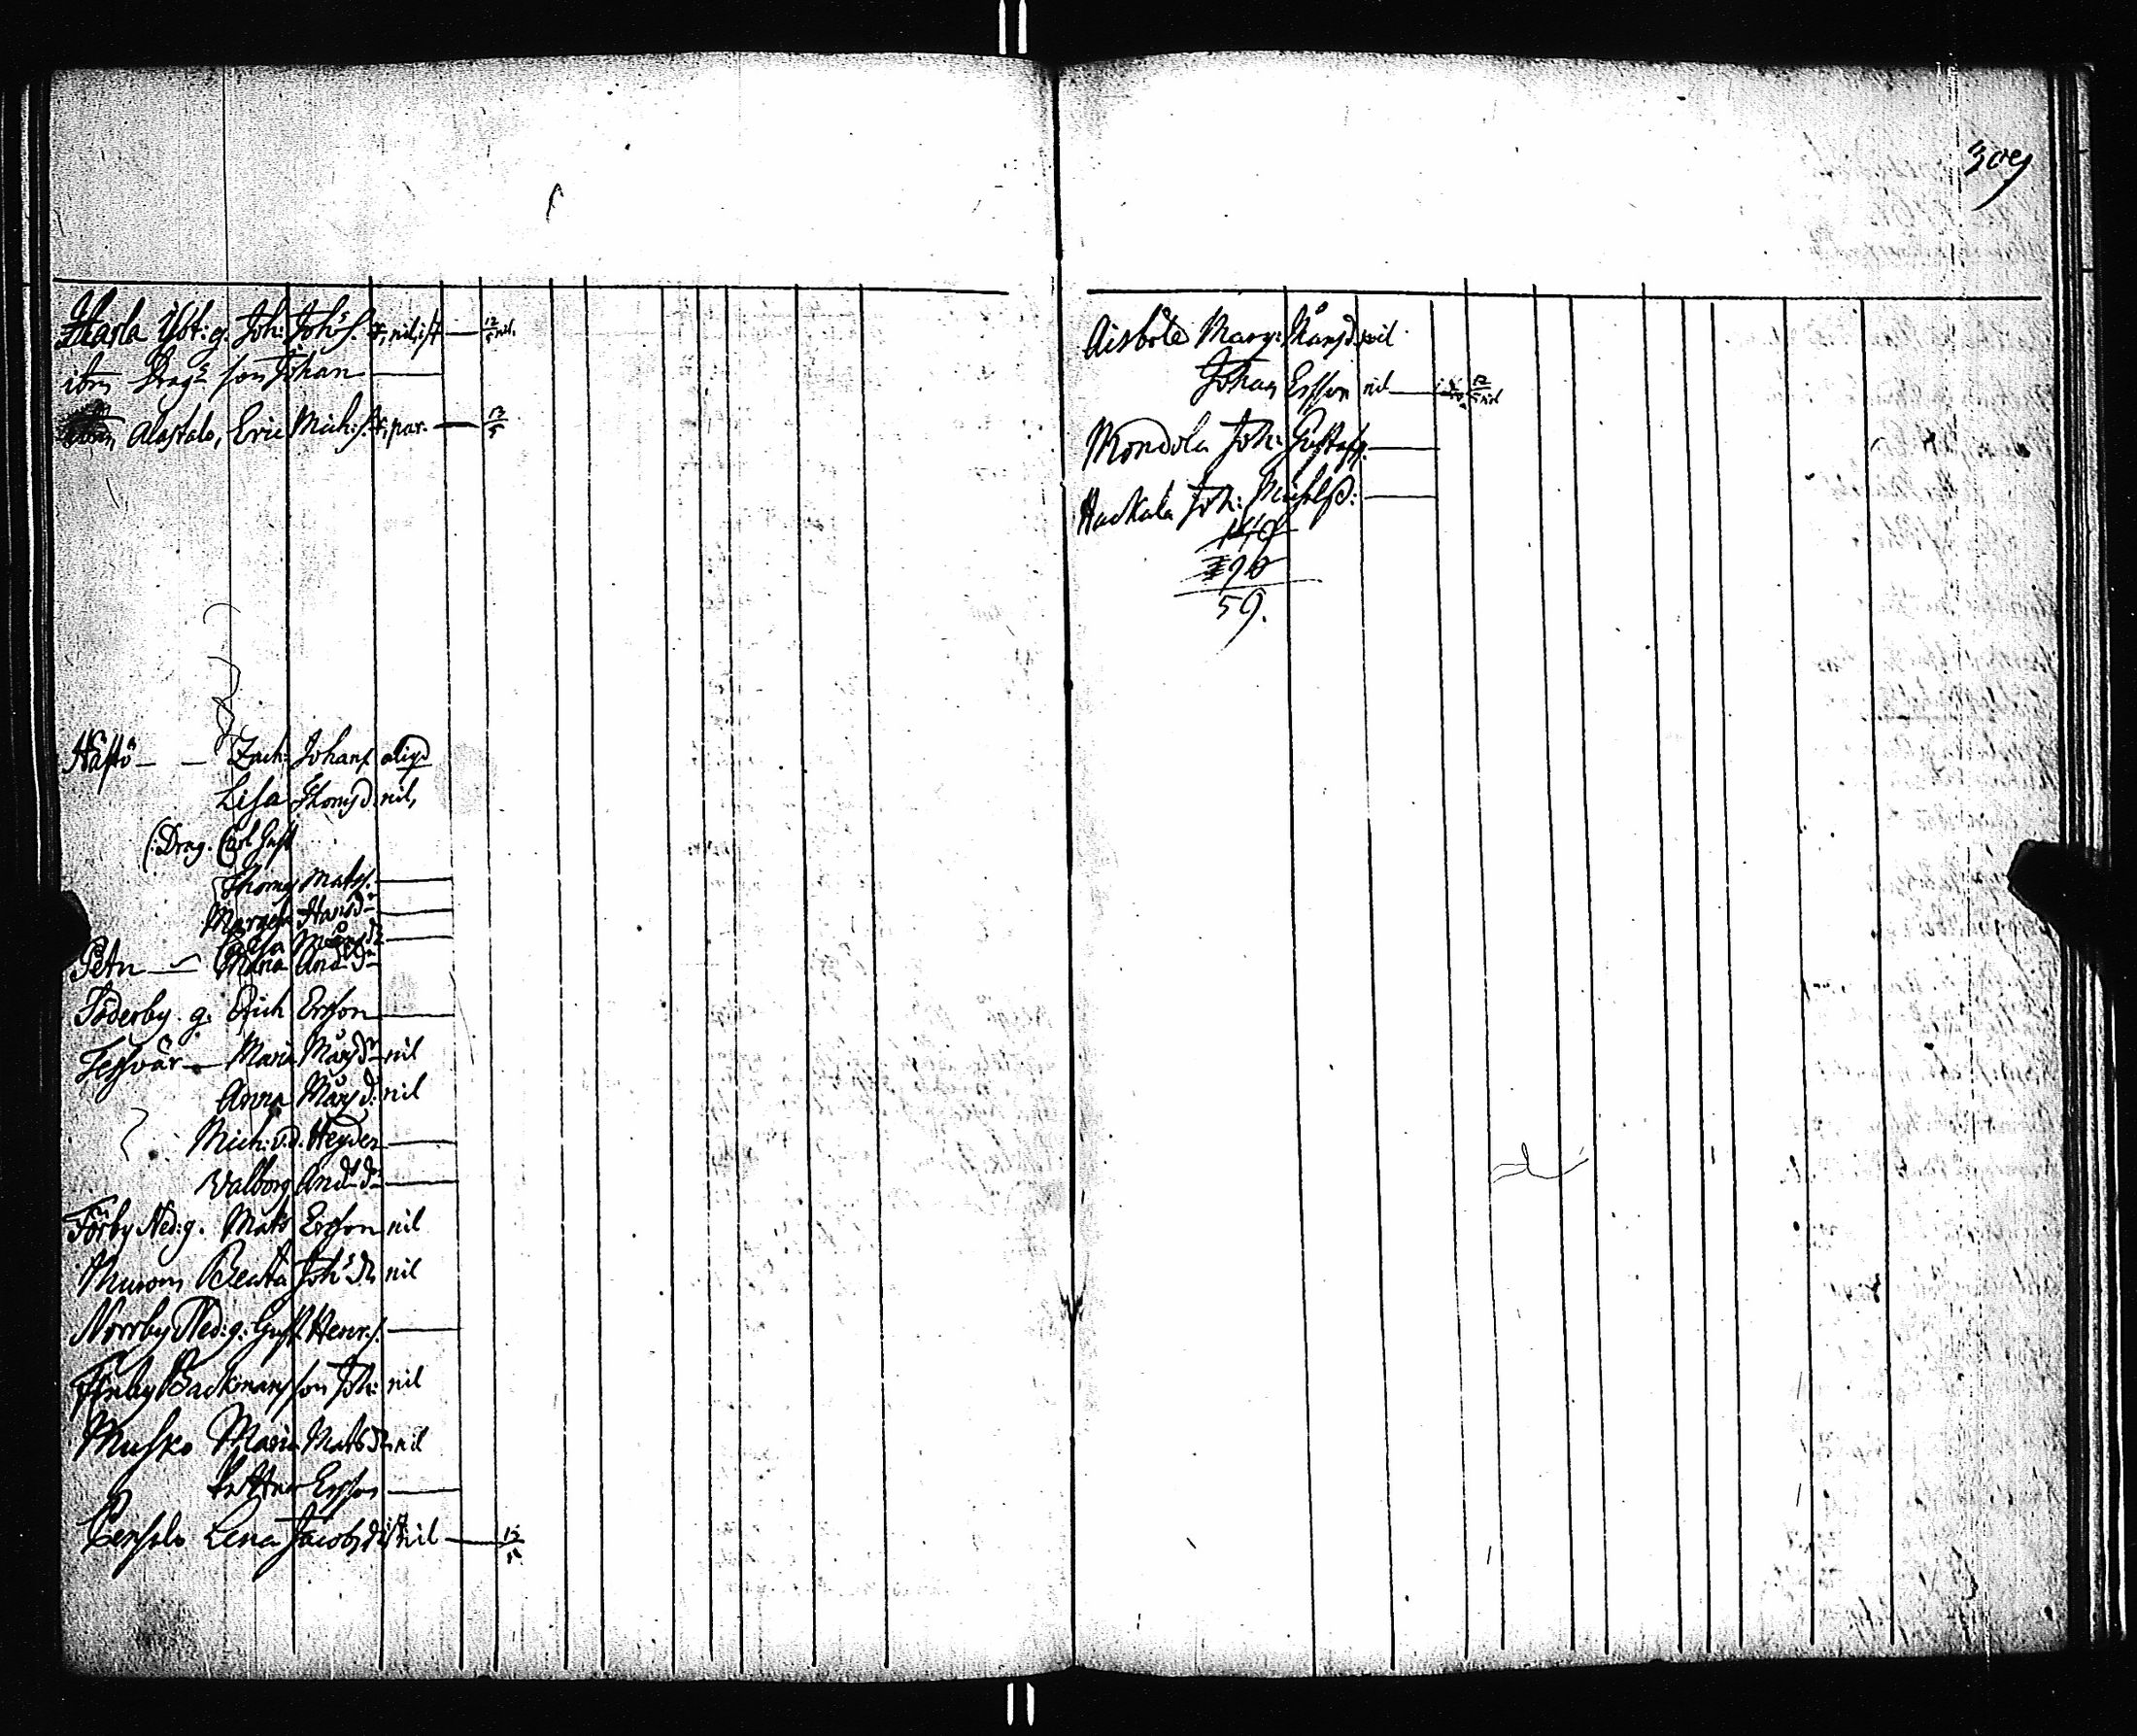 Karla Ybt: g. Joh: Johs S. nil
ibm Drag: son Johan
ibm Alastalo, Eric Mich: s. par. 12/5
Håstö - - Zach: Johans. aligd
Lisa Thomsd. nil,
(: Drag. Carl Gust
Thoms Mats.
Margeta Hansdr
Caisa
Petn - Maria Andsdr
Söderby. g. Erich Ersson
Maria Månsdr nil
Anna Månsd: nil
Mich: v.d. Heyden
Valborg Andsdr
Förby Ned: g. Mats Ersson nil
Murom Beata Johsdr nil
Norrby Ned: g: Gust. Henr. s.
Finby Backmans son Joh: nil
Musko Maria Matsdr nil
Ersson
Lena Jacobsd nil 12/5
309
Aisböle Marg: Månsd. nil
Johan Ersson nil 12/5 nil
Mondola Joh: Gustafss.
Hackala Joh: Michelss:
149
90
59.